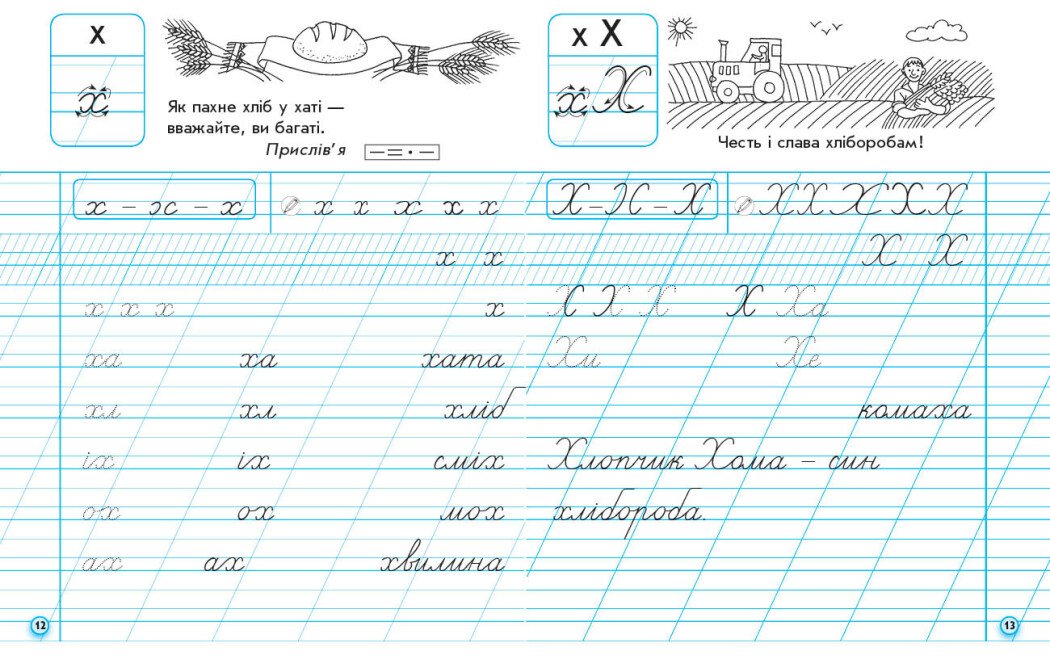 х
х
Як пахне хліб у хаті —
вважайте, ви багаті.
Прислів'я
х – эс – х х х х х х
х х
х х х х
ха ха хата
хл хл хліб
іх іх сміх
ох ох мох
ах ах хвилина
12
х Х
х Х
Честь і слава хліборобам!
Х – Х Х Х Х Х Х
Х Х
Х Х Х Х Ха
Хи Хе
комаха
Хлопчик Хома – син
хлібороба.
13